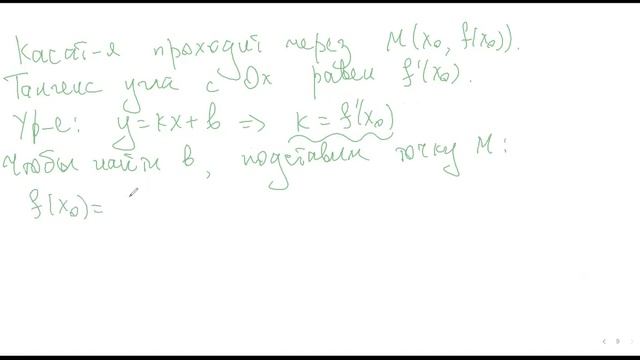 Касат-я проходит через M(x₀, f(x₀)).
Тангенс угла с Ox равен f'(x₀).
Ур-е: y = kx + b ⇒ k = f'(x₀)
Чтобы найти b, подставим точку M:
f(x₀) =